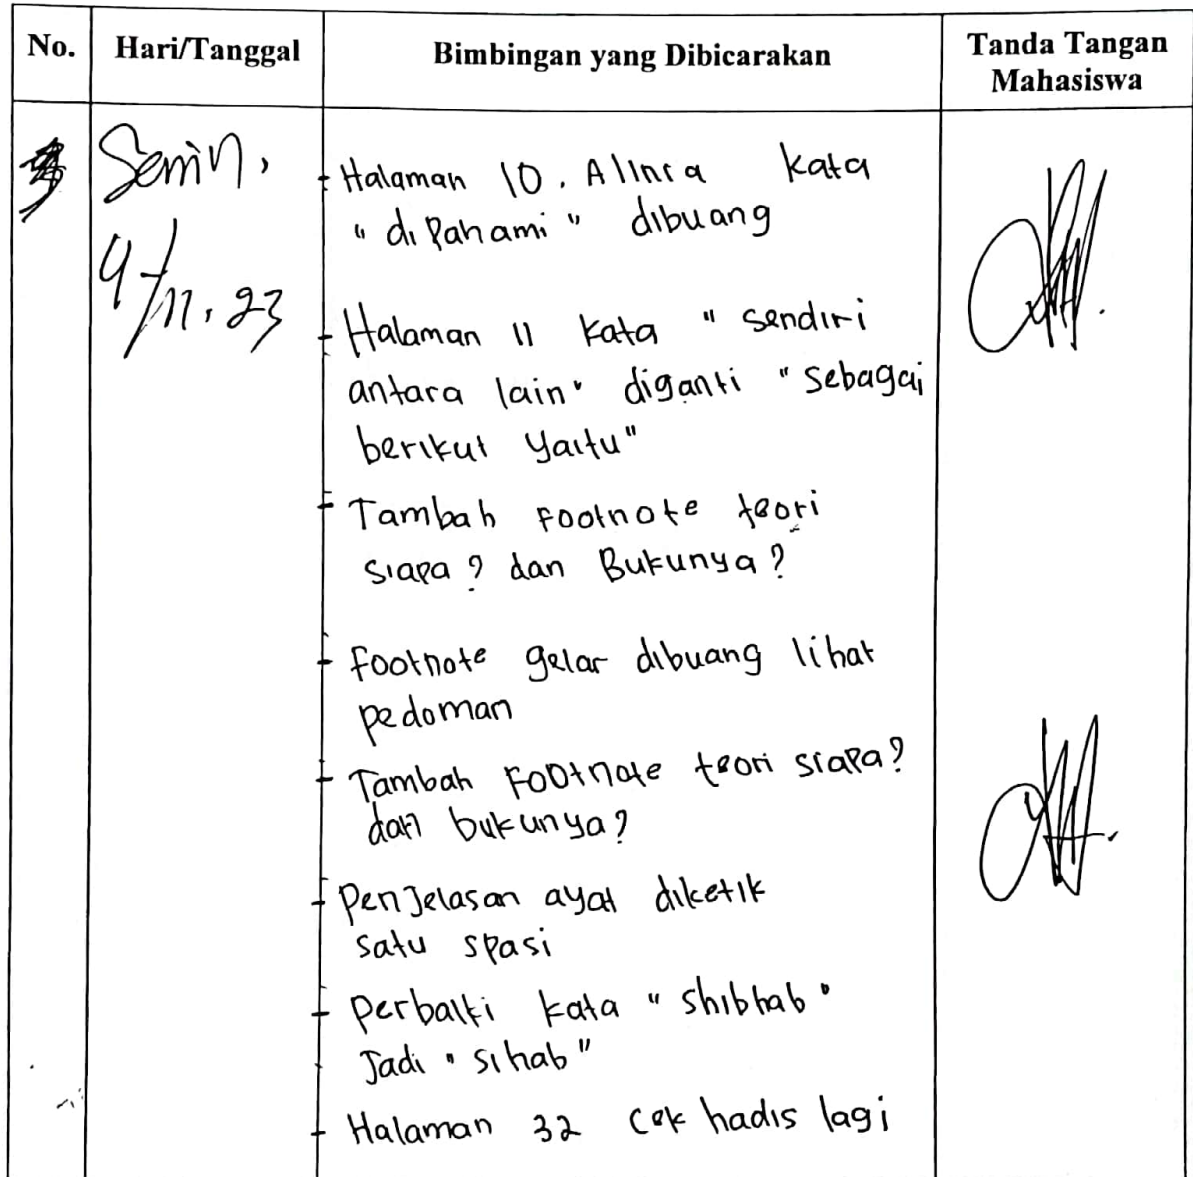 No. Hari/Tanggal Bimbingan yang Dibicarakan Tanda Tangan Mahasiswa
Senin,
9/11.23
- Halaman 10. Alinra kata
"dipahami" dibuang
- Halaman 11 kata "sendiri
antara lain" diganti "sebagai
berikut yaitu"
- Tambah footnote teori
siapa? dan Bukunya?
- footnote gelar dibuang lihat
pedoman
- Tambah Footnote teori siapa?
dan bukunya?
- Penjelasan ayat diketik
satu spasi
- Perbaiki kata "shibhab"
Jadi "sihab"
- Halaman 32 cek hadis lagi